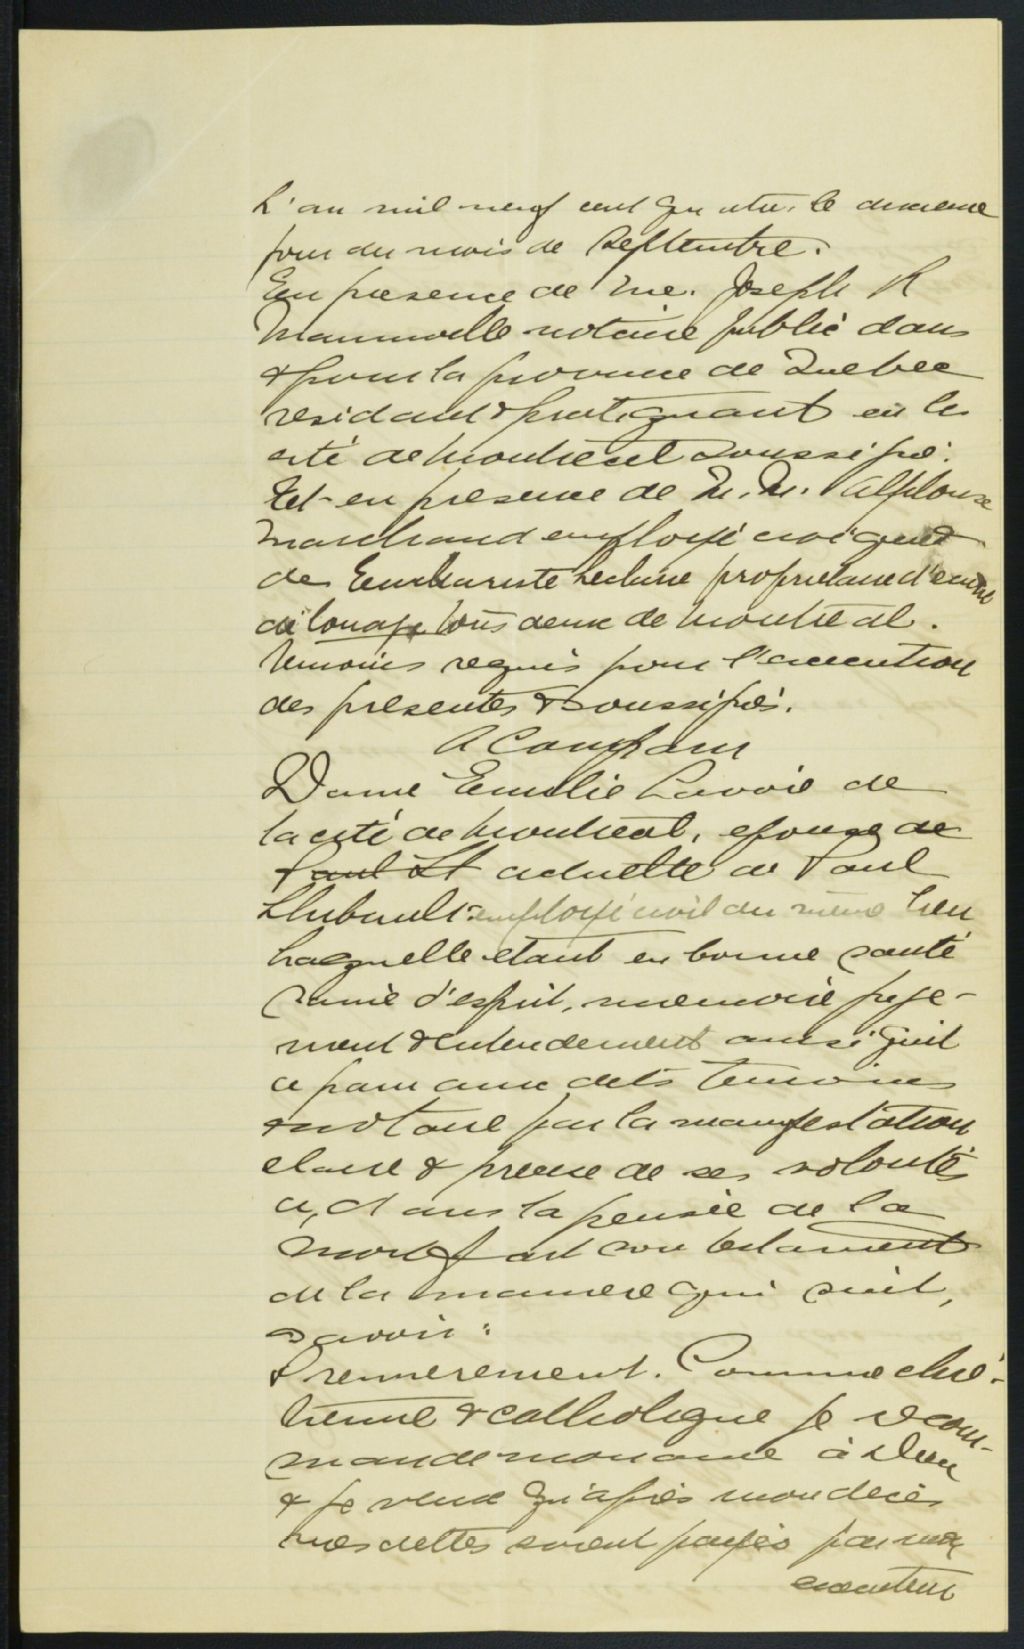 L'an mil neuf cent quatre, le deuxieme
jour du mois de Septembre.
En presence de Me. Joseph R
Mainville notaire public dans
& pour la province de Quebec
residant & pratiquant en la
cité de Montreal soussigné.
Et en presence de M. M. Alphonse
Marchand employé civique &
de Euchariste Leclaire proprietaire d'ecurie
de louage tous deux de Montreal.
temoins requis pour l'execution
des presentes & soussignés.
A Comparu
Dame Emelie Lavoie de
la cité de Montreal, epouse de
Paul St actuelle de Paul
L'hubault employé civil du même lieu
Laquelle etant en bonne santé
saine d'esprit, memoire juge-
ment & entendement ainsi quil
a paru aux dits temoins
& notaire par la manifestation
claire & precise de ses volontés
a, dans la pensée de la
mort fait son testament
de la maniere qui suit,
savoir:
Premierement. Comme chré-
tienne & catholique je recom-
mande mon ame à Dieu
& je veux qu'après mon decès
mes dettes soient payées par mon
executeur